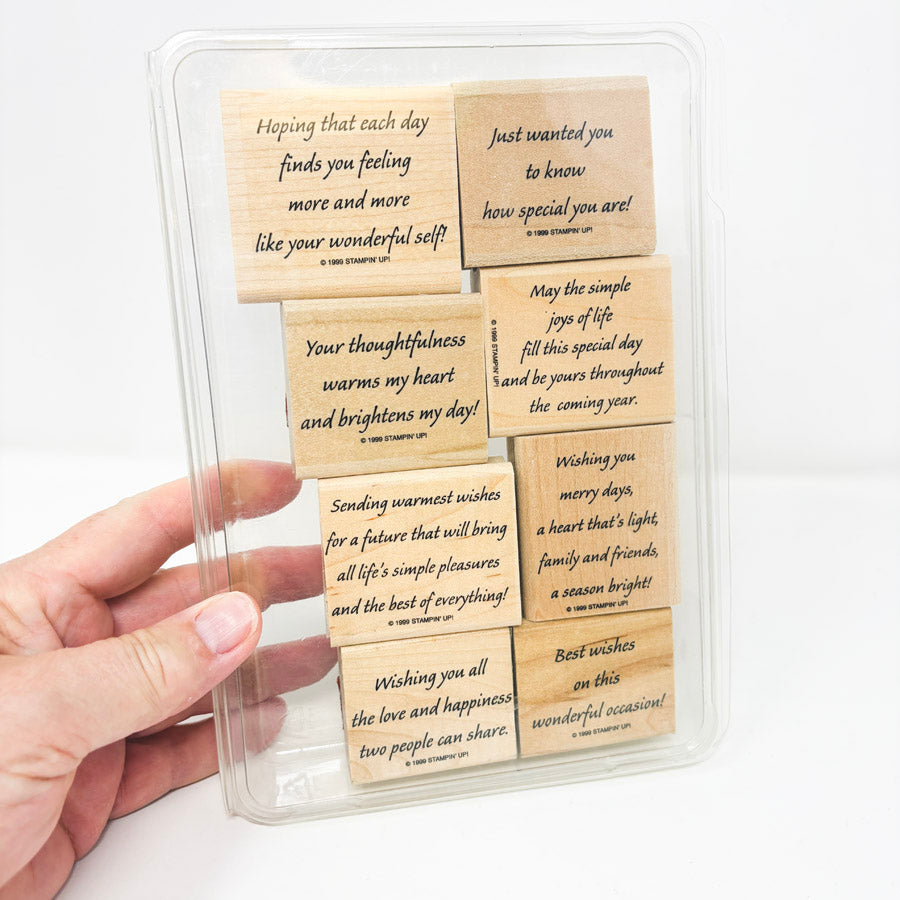 Hoping that each day
finds you feeling
more and more
like your wonderful self!
© 1999 STAMPIN' UP!
Just wanted you
to know
how special you are!
© 1999 STAMPIN' UP!
Your thoughtfulness
warms my heart
and brightens my day!
© 1999 STAMPIN' UP!
May the simple
joys of life
fill this special day
and be yours throughout
the coming year.
© 1999 STAMPIN' UP!
Sending warmest wishes
for a future that will bring
all life's simple pleasures
and the best of everything!
© 1999 STAMPIN' UP!
Wishing you
merry days,
a heart that's light,
family and friends,
a season bright!
© 1999 STAMPIN' UP!
Wishing you all
the love and happiness
two people can share.
© 1999 STAMPIN' UP!
Best wishes
on this
wonderful occasion!
© 1999 STAMPIN' UP!